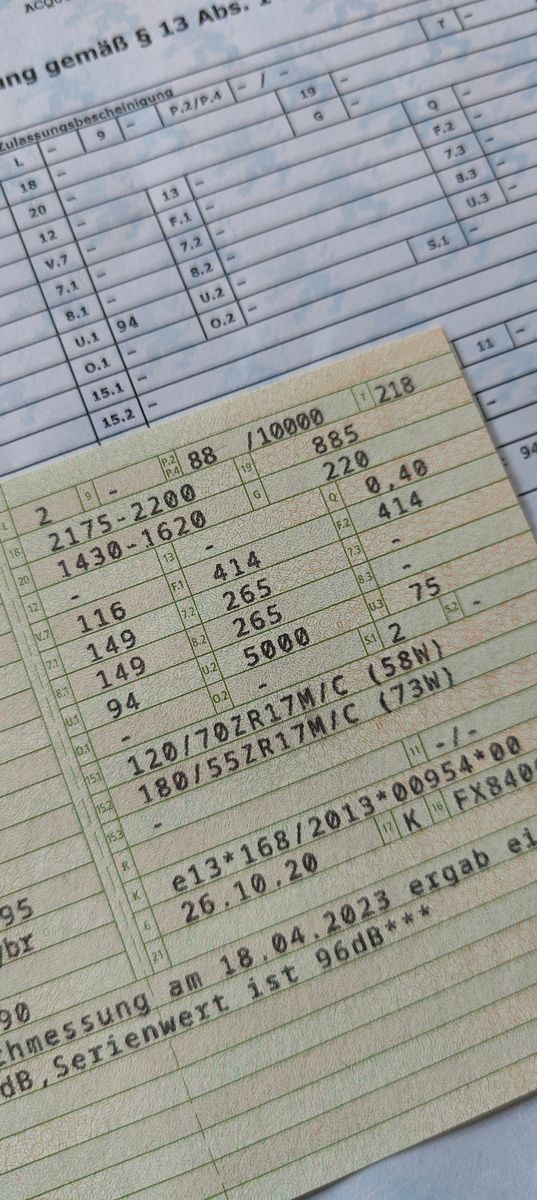 ung gemäß § 13 Abs. 1
Zulassungsbescheinigung
L - 9 - P.2/P.4 - / - T -
18 - 19 -
20 - G -
12 - 13 - Q -
V.7 - F.1 - F.2 -
7.1 - 7.2 - 7.3 -
8.1 - 8.2 - 8.3 -
U.1 94 U.2 - U.3 -
O.1 - O.2 - S.1 -
15.1 -
15.2 - 11 -
L 2 9 - P.2 P.4 88 /10000 T 218
18 2175-2200 19 885
20 1430-1620 G 220
12 - 13 - Q 0,40
V.7 116 F.1 414 F.2 414
7.1 149 7.2 265 7.3 -
8.1 149 8.2 265 8.3 -
U.1 94 U.2 5000 U.3 75
O.1 - O.2 - S.1 2 S.2 -
15.1 120/70ZR17M/C (58W)
15.2 180/55ZR17M/C (73W)
15.3 - 11 -/-
R
K e13*168/2013*00954*00
6 26.10.20 17 K 16 FX840
21
95
/br
90
chmessung am 18.04.2023 ergab ei
dB,Serienwert ist 96dB***